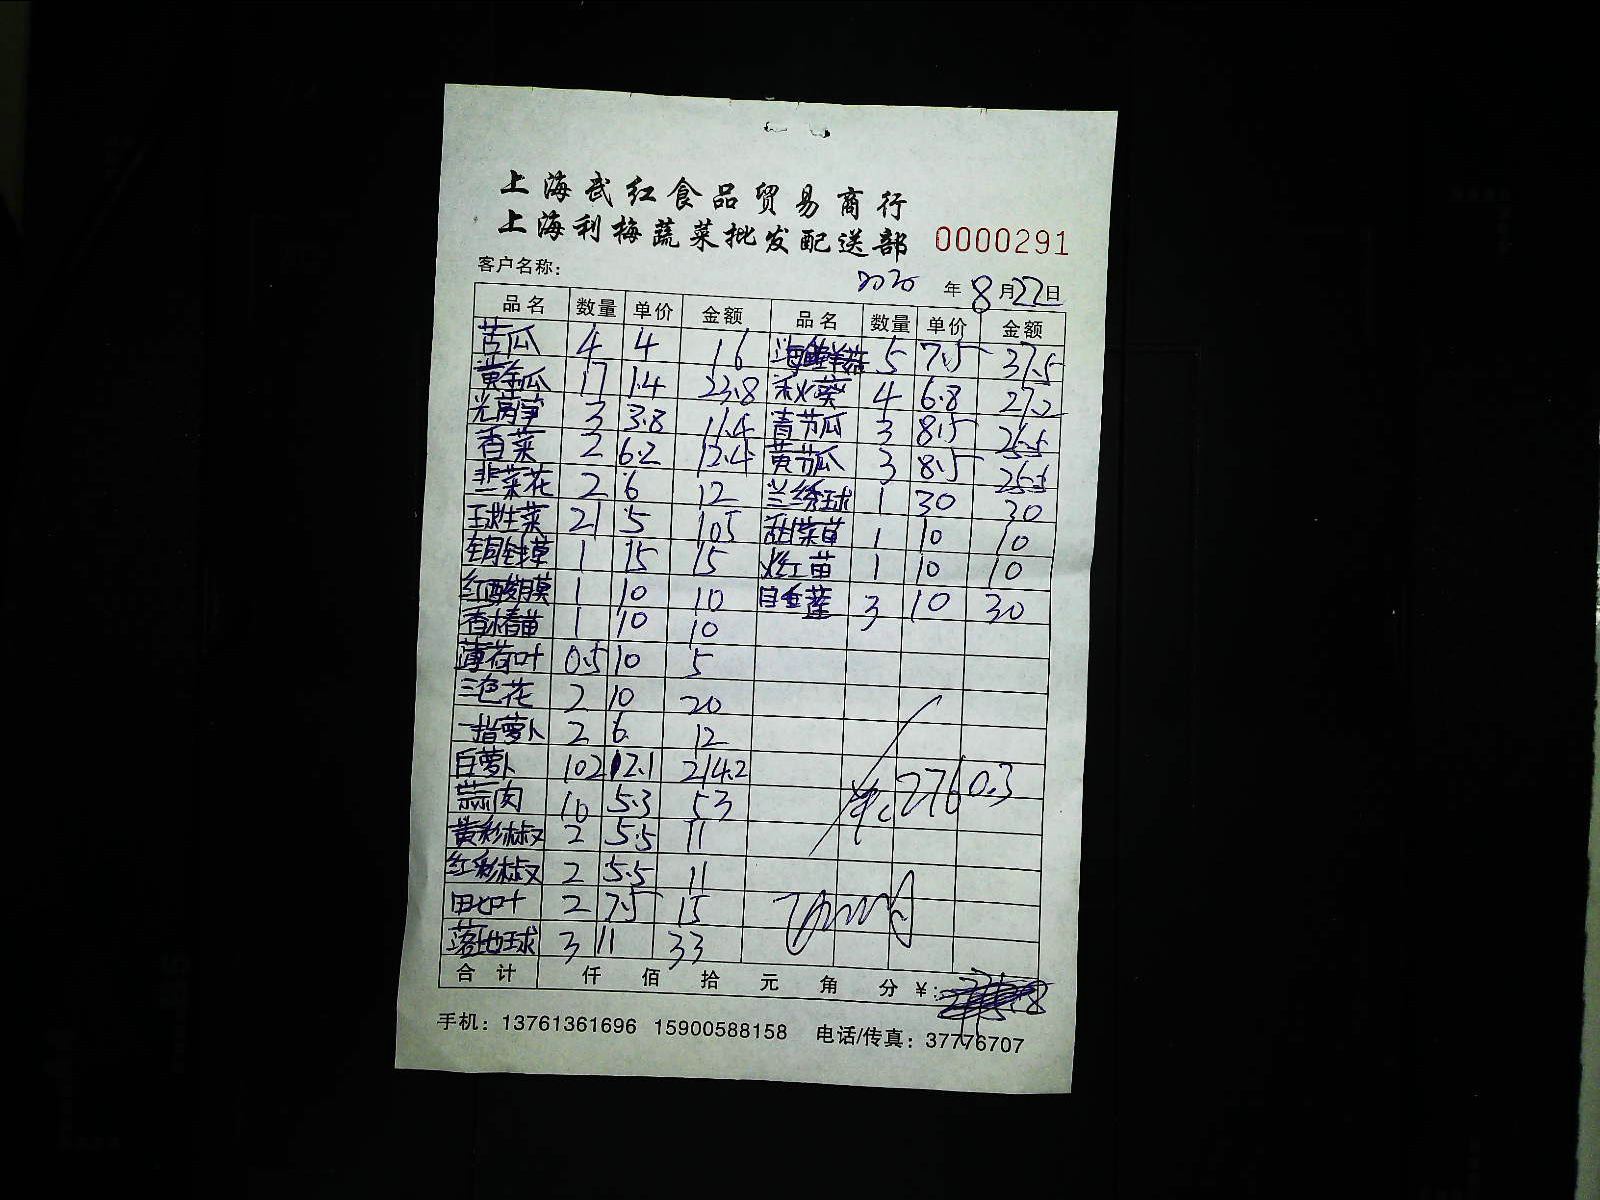 上海武红食品贸易商行
上海利梅蔬菜批发配送部 0000291
客户名称： 2020 年 8 月 22 日
品名 数量 单价 金额 品名 数量 单价 金额
苦瓜 4 4 16 海鲜菇 5 7.5 37.5
黄金瓜 17 1.4 23.8 禾火葵 4 6.8 27.2
光莴笋 3 3.8 11.4 青节瓜 3 8.5 25.5
香菜 2 6.2 12.4 黄节瓜 3 8.5 25.5
韭菜花 2 6 12 兰绣球 1 30 30
球生菜 21 5 105 甜菜苗 1 10 10
铜钱草 1 15 15 火红苗 1 10 10
红酸膜 1 10 10 3 10 30
香椿苗 1 10 10
薄荷叶 0.5 10 5
三色花 2 10 20
一指萝卜 2 6 12
白萝卜 102 2.1 214.2
蒜肉 10 5.3 53 2760.3
黄彩椒 2 5.5 11
红彩椒 2 5.5 11
田七叶 2 7.5 15
落地球 3 11 33
合计 仟 佰 拾 元 角 分 ￥：
手机：13761361696 15900588158 电话/传真：37776707